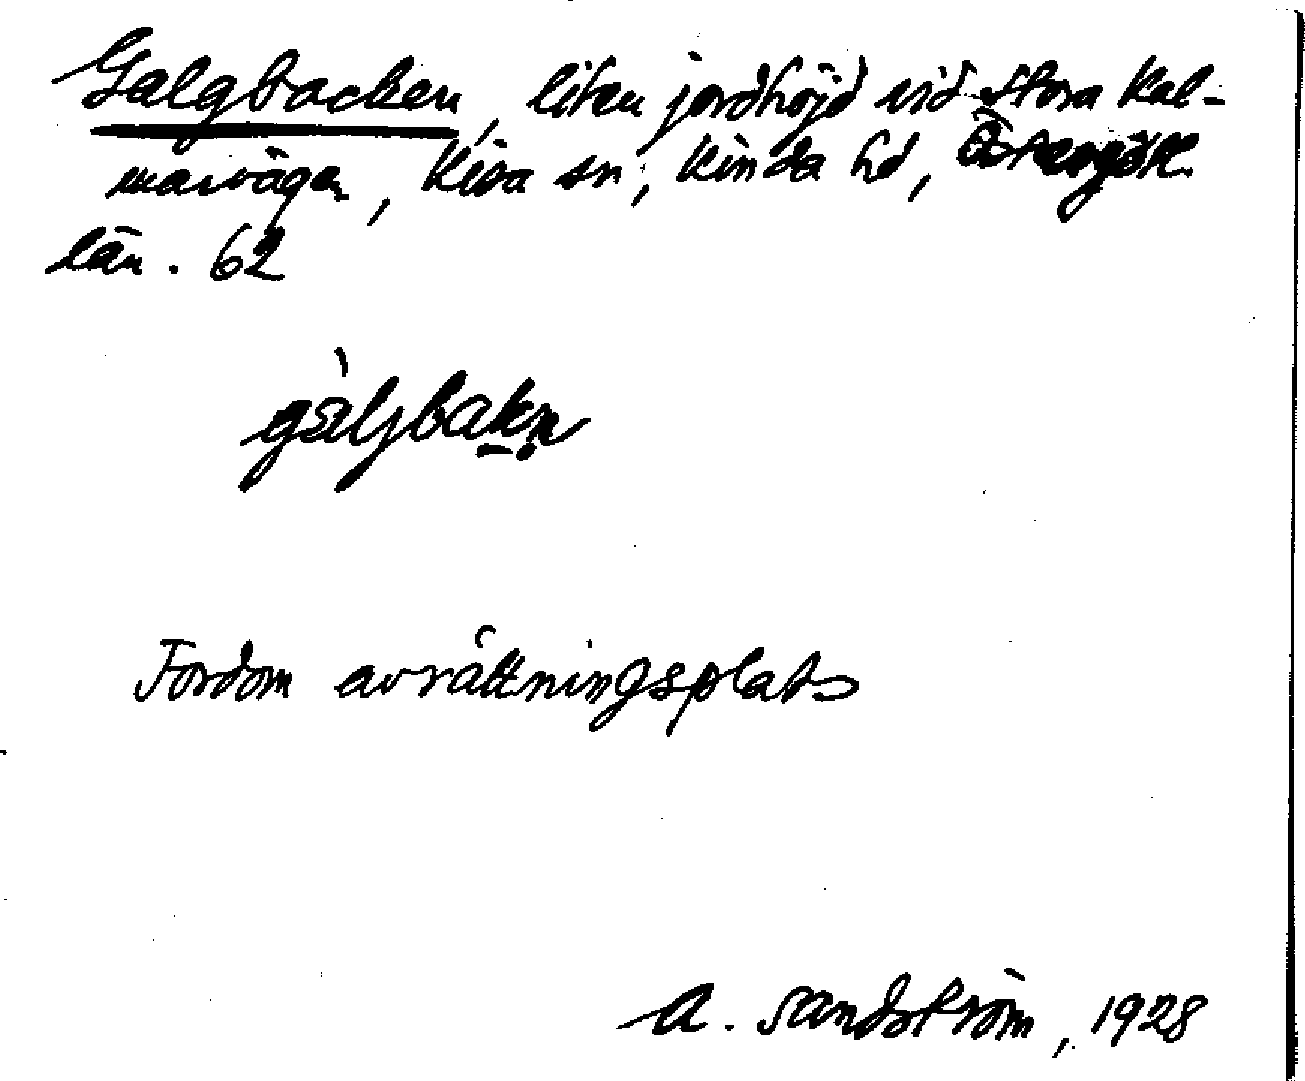 Galgbacken, liten jordhöjd vid Stora Kal-
marvägen, Kisa sn, Kinda hd, Östergötl.
län. 62
gàljbakn̥
Fordom avrättningsplats
A. Sandström, 1928